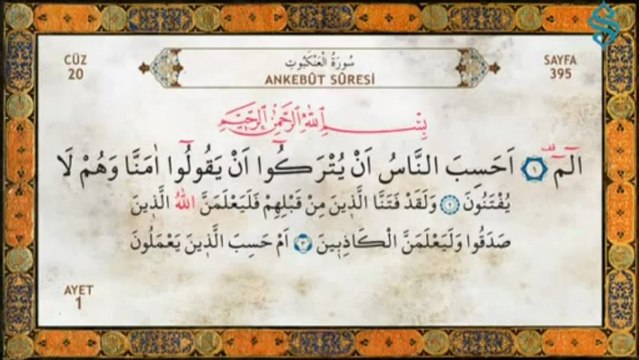 CÜZ
20
سُورَةُ الْعَنْكَبُوتِ
ANKEBÛT SÛRESİ
SAYFA
395
بِسْمِ اللّٰهِ الرَّحْمٰنِ الرَّحِيمِ
الٓمٓ ۚ ﴿١﴾ اَحَسِبَ النَّاسُ اَنْ يُتْرَكُٓوا اَنْ يَقُولُٓوا اٰمَنَّا وَهُمْ لَا
يُفْتَنُونَ ﴿٢﴾ وَلَقَدْ فَتَنَّا الَّذ۪ينَ مِنْ قَبْلِهِمْ فَلَيَعْلَمَنَّ اللّٰهُ الَّذ۪ينَ
صَدَقُوا وَلَيَعْلَمَنَّ الْكَاذِب۪ينَ ﴿٣﴾ اَمْ حَسِبَ الَّذ۪ينَ يَعْمَلُونَ
AYET
1